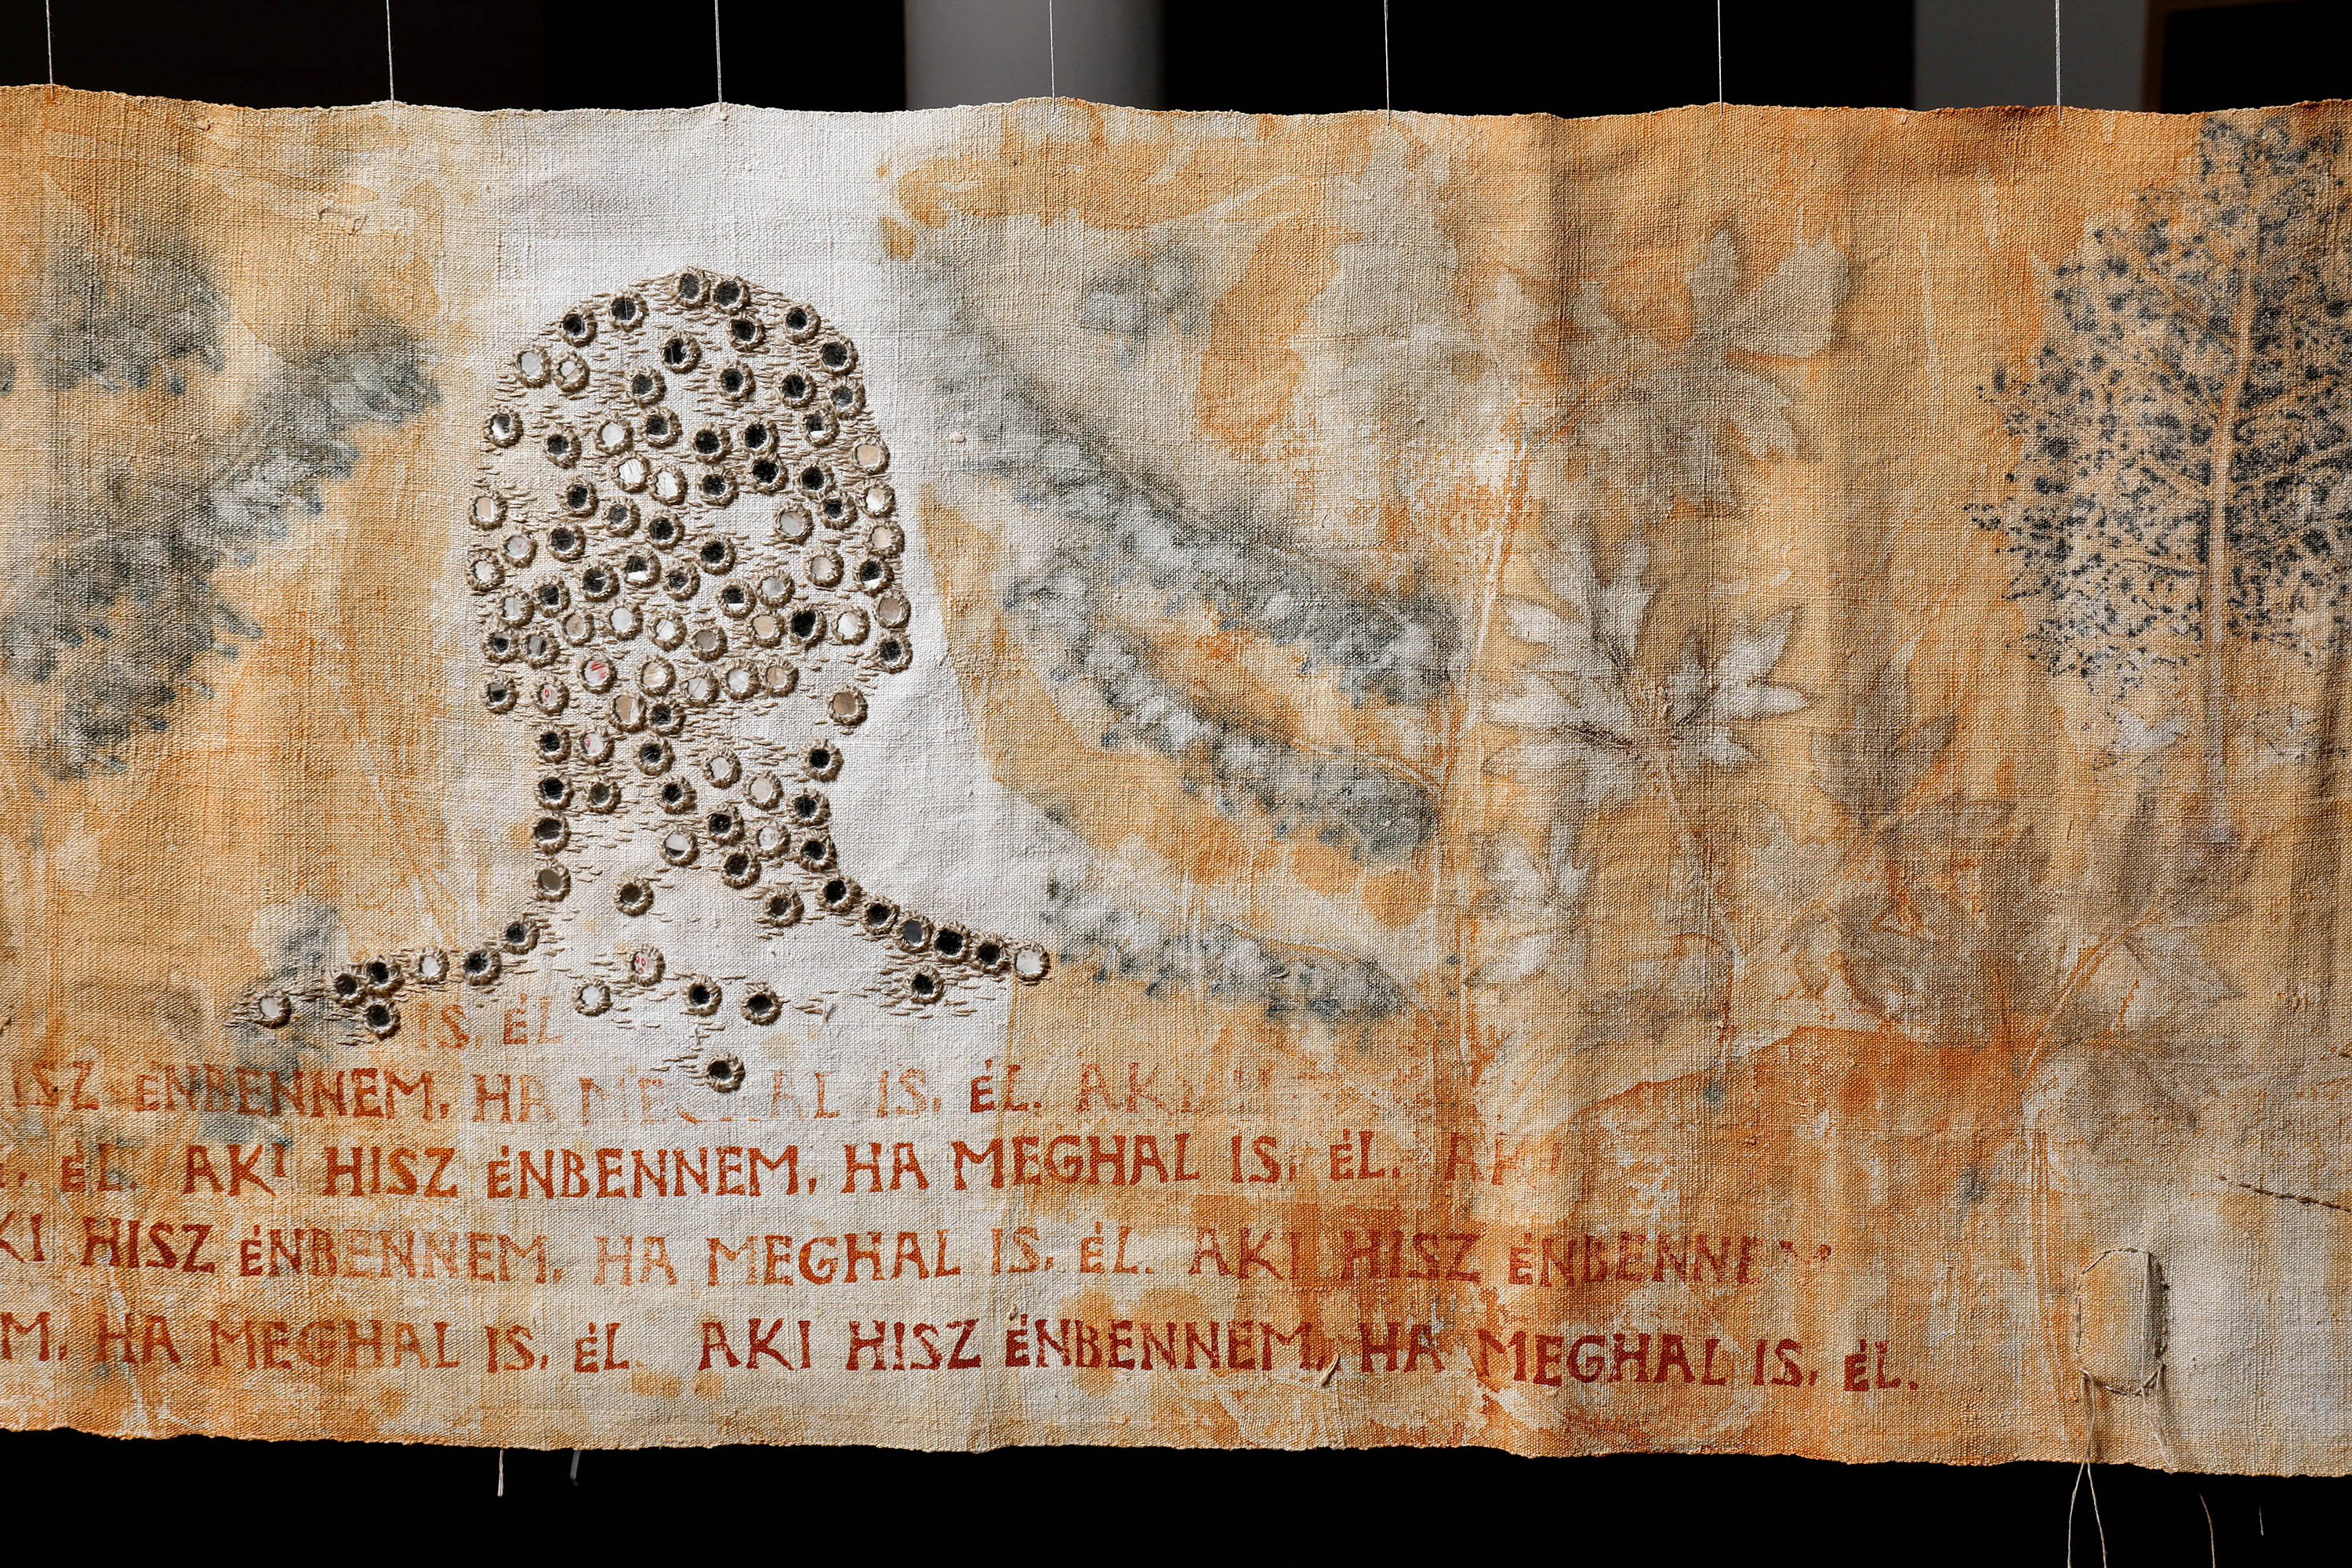 IS, ÉL.
HISZ ÉNBENNEM, HA MEGHAL IS, ÉL. AKI
ÉL. AKI HISZ ÉNBENNEM, HA MEGHAL IS, ÉL. AKI
AKI HISZ ÉNBENNEM, HA MEGHAL IS, ÉL. AKI HISZ ÉNBENNEM
M, HA MEGHAL IS, ÉL. AKI HISZ ÉNBENNEM, HA MEGHAL IS, ÉL.